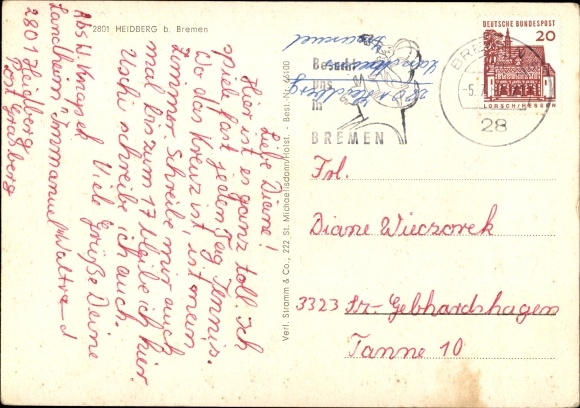 2801 HEIDBERG b. Bremen
Liebe Diane!
Hier ist es ganz toll. Ich
spiele fast jeden Tag Tennis.
Wo das Kreuz ist, ist mein
Zimmer. Schreibe mir auch
mal bis zum 17. bleibe ich hier.
Uschi schreibe ich auch.
Viele Grüße Deine
Waltra-d
Abs W. Knapsel
Landheim „Immanuel"
2801 Heidberg
Post Grasberg
Verl. Stramm & Co., 222 St. Michaelisdonn/Holst. - Best.-Nr. 45100
Landheim Immanuel
2801 Heidberg
Besucht
uns
in
BREMEN
BREMEN
-5.
28
DEUTSCHE BUNDESPOST
20
LORSCH/HESSEN
Frl.
Diane Wieczorek
3323 Sz-Gebhardshagen
Tanne 10